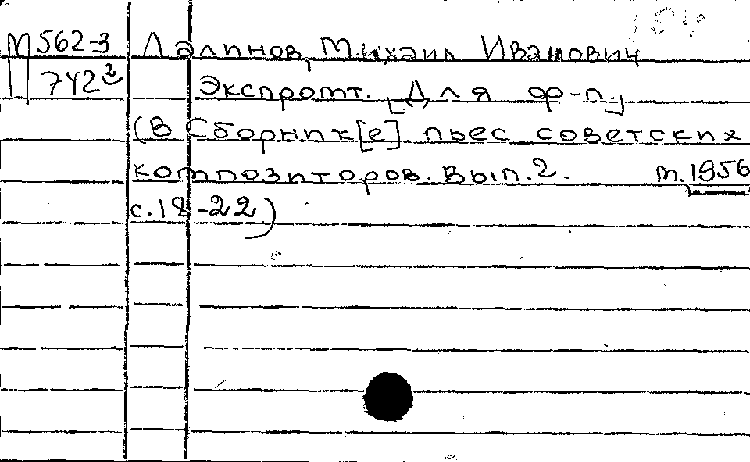 М 562-3 Лапинов, Михаил Иванович
П 742² Экспромт. [Для ф-п.]
(В Сборник[е] пьес советских
композиторов. Вып. 2. м. 1956
с. 18-22)